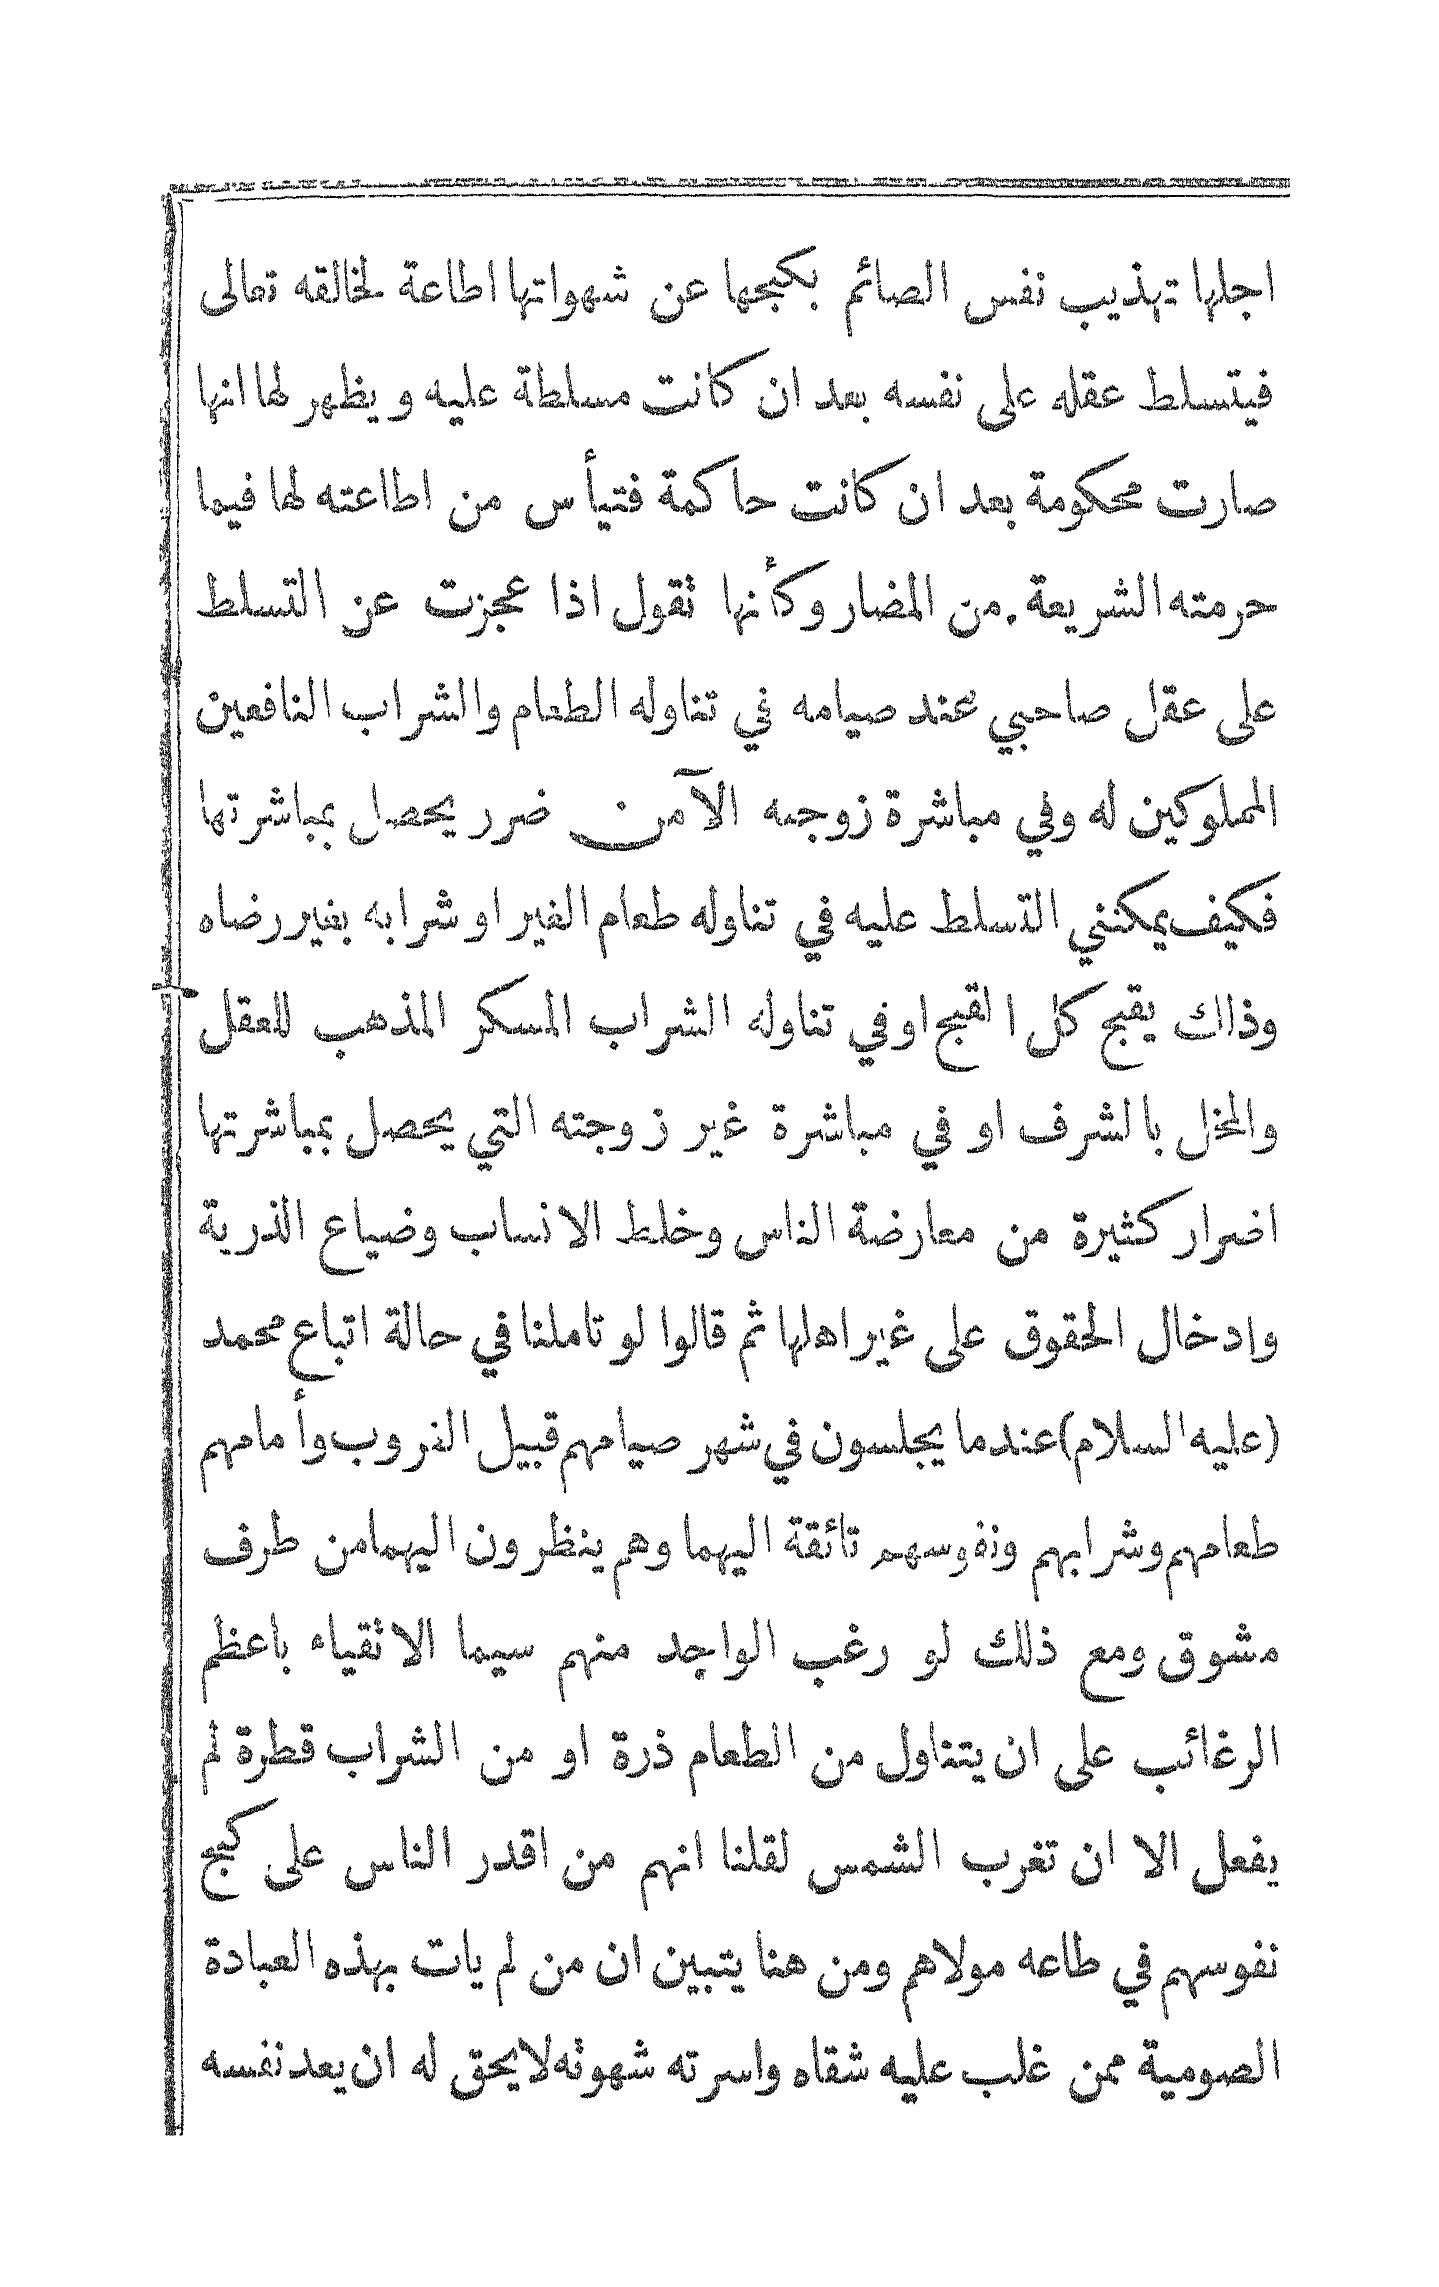 اجلها تهذيب نفس الصائم بكبحها عن شهواتها اطاعة لخالقه تعالى
فيتسلط عقله على نفسه بعد ان كانت مسلطة عليه و يظهر لها انها
صارت محكومة بعد ان كانت حاكمة فتيأس من اطاعته لها فيما
حرمته الشريعة من المضار وكأنها تقول اذا عجزت عن التسلط
على عقل صاحبي عند صيامه في تناوله الطعام والشراب النافعين
المملوكين له وفي مباشرة زوجته الآمن ضرر يحصل بمباشرتها
فكيف يمكنني التسلط عليه في تناوله طعام الغير او شرابه بغير رضاه
وذاك يقبح كل القبح او في تناوله الشراب المسكر المذهب للعقل
والمخل بالشرف او في مباشرة غير زوجته التي يحصل بمباشرتها
اضرار كثيرة من معارضة الناس وخلط الانساب وضياع الذرية
وادخال الحقوق على غير اهلها ثم قالوا لو تاملنا في حالة اتباع محمد
(عليه السلام) عندما يجلسون في شهر صيامهم قبيل الغروب وأمامهم
طعامهم وشرابهم ونفوسهم تائقة اليهما وهم ينظرون اليهما من طرف
مشوق ومع ذلك لو رغب الواحد منهم سيما الاتقياء باعظم
الرغائب على ان يتناول من الطعام ذرة او من الشراب قطرة لم
يفعل الا ان تغرب الشمس لقلنا انهم من اقدر الناس على كبح
نفوسهم في طاعه مولاهم ومن هنا يتبين ان من لم يات بهذه العبادة
الصومية ممن غلب عليه شقاه واسرته شهوته لا يحق له ان يعد نفسه